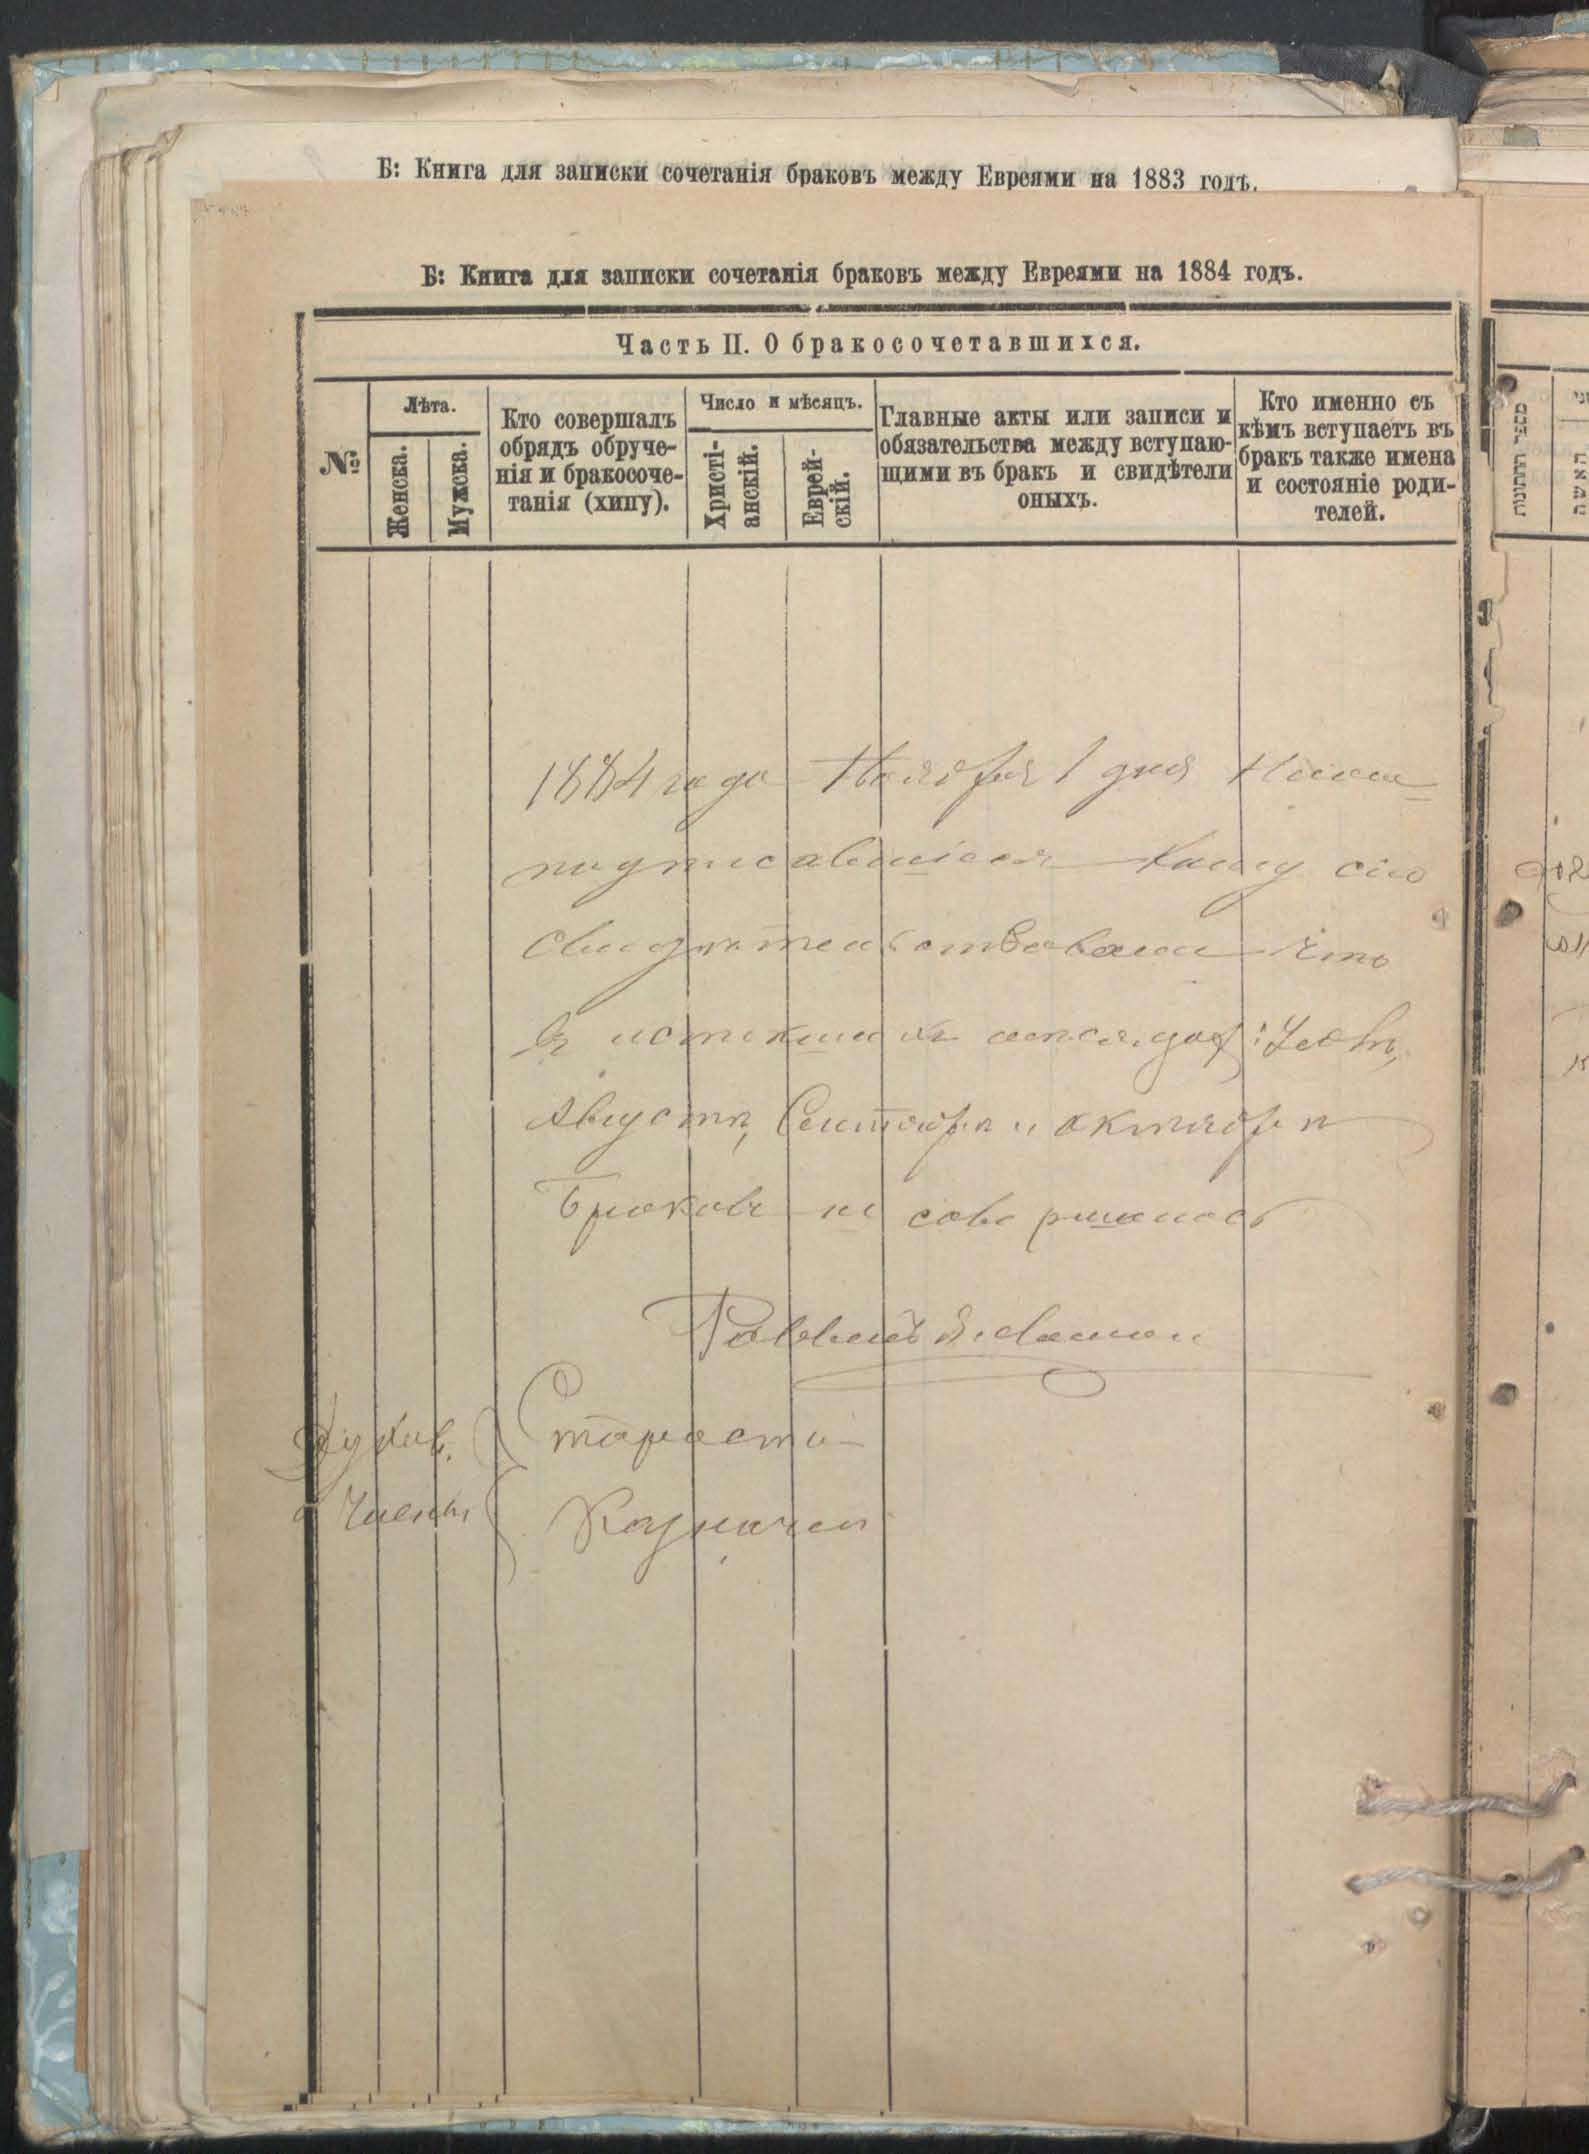 Б: Книга для записки сочетанія браковъ между Евреями на 1883 годъ.
Б: Книга для записки сочетанія браковъ между Евреями на 1884 годъ.
Часть II. О бракосочетавшихся.
№
Лѣта.
Женска.
Мужска.
Кто совершалъ
обрядъ обруче-
нія и бракосоче-
танія (хипу).
Число и мѣсяцъ.
Христі-
анскій.
Еврей-
скій.
Главные акты или записи и
обязательства между вступаю-
щими въ бракъ и свидѣтели
оныхъ.
Кто именно съ
кѣмъ вступаетъ въ
бракъ также имена
и состояніе роди-
телей.
מספר החתונות
האשה
1884 года Ноября 1 дня Ниже-
подписавшіеся Книгу сію
свидѣтельствовали что
въ истекшихъ мѣсяцахъ: Іюлѣ,
Августѣ, Сентябрѣ и октябрѣ
Браковъ не совершалось
Раввинъ
Духов.
Члены
Староста
Казначей